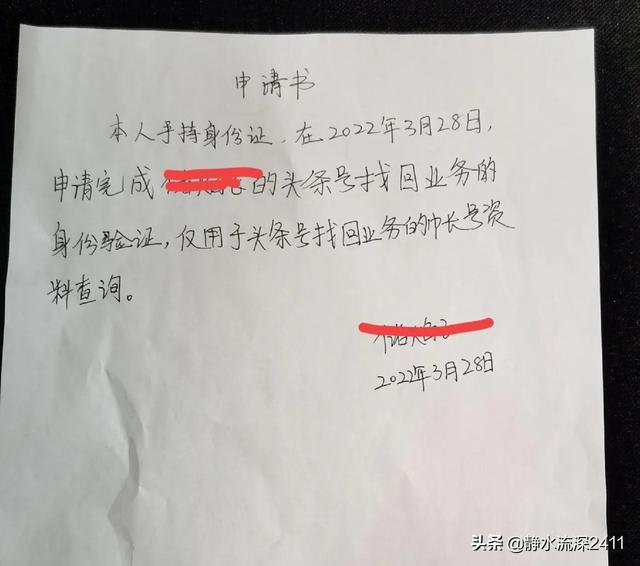 申请书
本人手持身份证,在2022年3月28日,
申请完成的头条号找回业务的
身份验证,仅用于头条号找回业务的帐号资
料查询。
2022年3月28日
头条 @静水流深2411